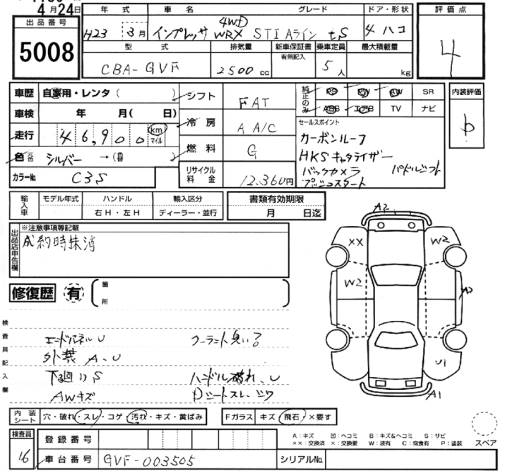 4月24日
出品番号
5008
年式 車名 グレード ドア・形状
H23 3月 インプレッサ 4WD WRX STI Aライン tS 4 ハコ
型式 排気量 新車保証書 有無記入 乗車定員 最大積載量
CBA-GVF 2500cc 5人 kg
評価点
4
車歴 自家用・レンタ( )
車検 年 月( 日)
走行 46,900 km マイル
色 シルバー →( )
カラーNo. C3S
シフト FAT
冷房 AAC
燃料 G
リサイクル料金 12,360円
純正のみ PS PW AW SR
ABS エアB TV ナビ
内装評価
b
セールスポイント
カーボンルーフ
HKSキャタライザー
バックカメラ パドルシフト
プッシュスタート
輸入車 モデル年式 ハンドル 右H・左H 輸入区分 ディーラー・並行
書類有効期限
月 日迄
出品店申告欄 ※注意事項等記載
成約時抹消
修復歴 有 箇所
検査員記入欄
エンドパネルU クーラント臭い?
外装 A、U
下廻りS ハンドル破れ、U
AWキズ Dシートスレ、シワ
内装シート 穴・破れ スレ・コゲ 汚れ・キズ・黄ばみ
Fガラス キズ 飛石 ×要す
A2
XX W2
W2
U1
A1
A:キズ 凹:ヘコミ B:キズ&ヘコミ S:サビ
××:交換済 ×:交換要 W:波有 C:腐食有 P:塗装
スペア
検査員
16
登録番号
車台番号 GVF-003505
シリアルNo.